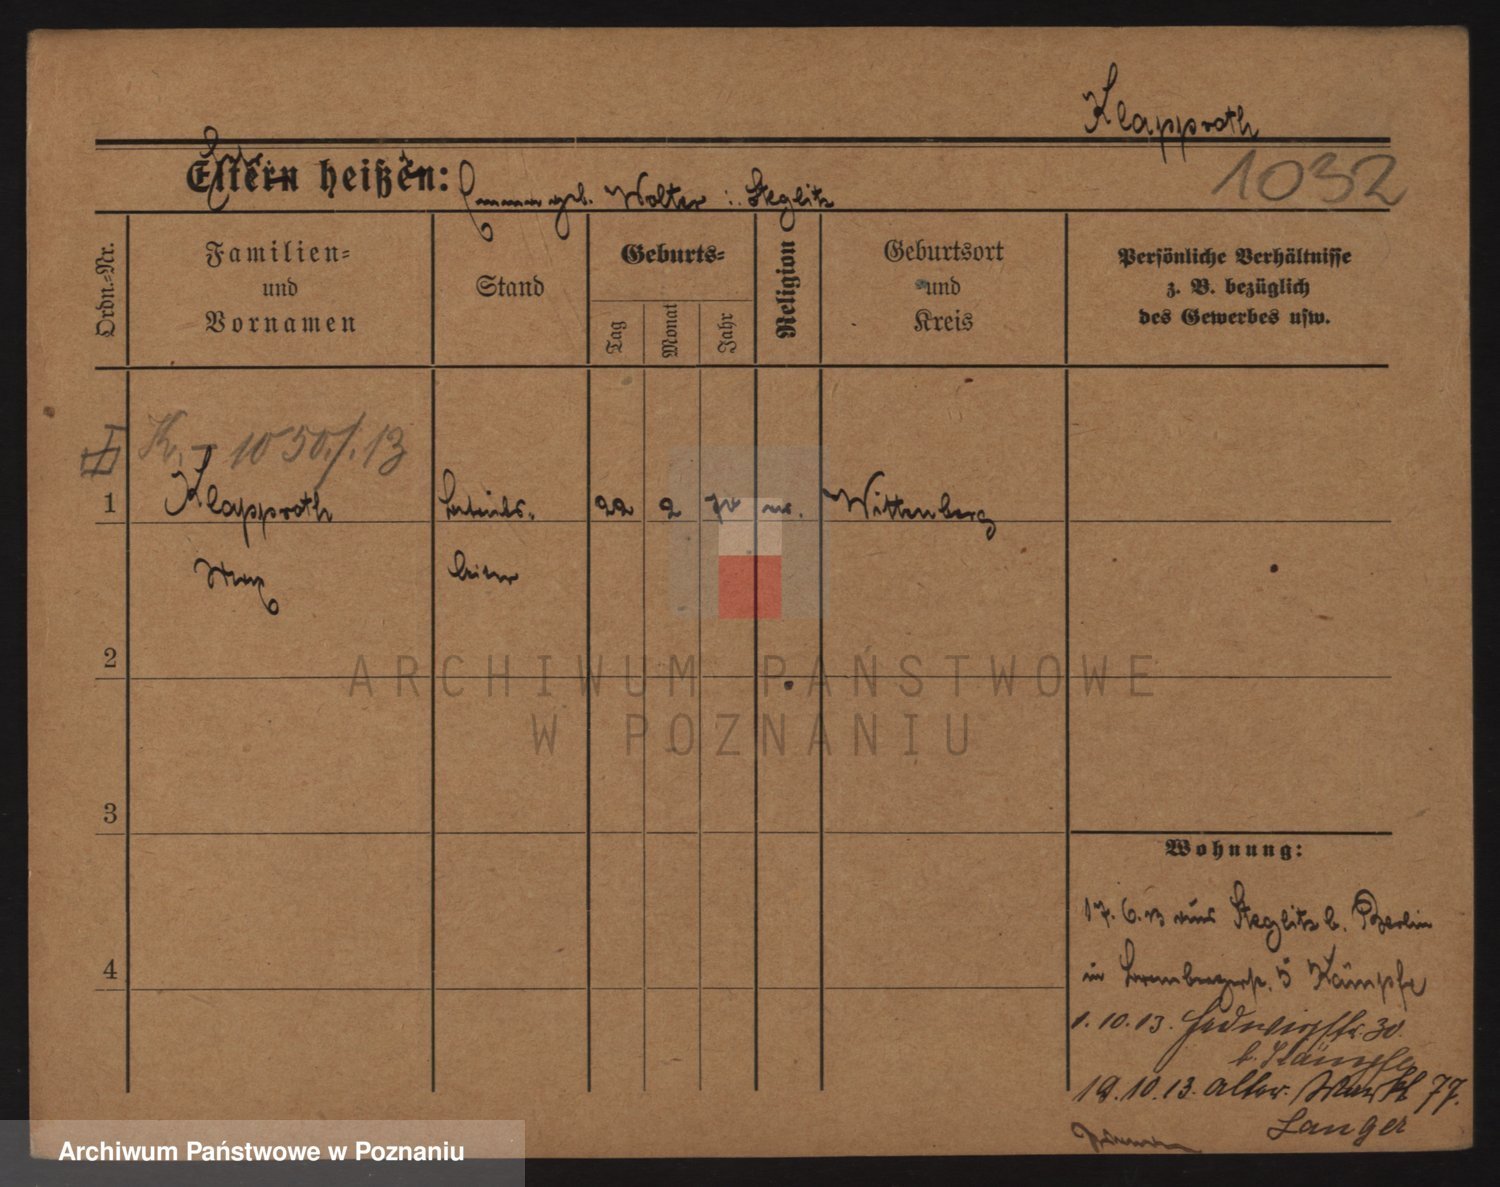 Klapproth
1032
Eltern heißen:
geb. Wolter : Steglitz
Ordn.-Nr.
Familien-
und
Vornamen
Stand
Geburts-
Tag
Monat
Jahr
Religion
Geburtsort
und
Kreis
Persönliche Verhältnisse
z. B. bezüglich
des Gewerbes usw.
K. 1050./.13
1
Klapproth
Betriebs-
22
2
ev.
Wittenberg
Max
leiter
2
ARCHIWUM PAŃSTWOWE
W POZNANIU
3
Wohnung:
17. 6. 13 aus Steglitz b. Berlin
in 5 Kämpfe
4
1. 10. 13. Hedwigstr. 30.
b. Kämpfe
19. 10. 13. Alter Markt 77.
Langer
Archiwum Państwowe w Poznaniu